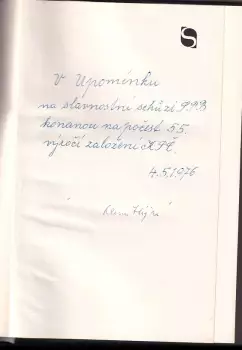 S
V Upomínku
na slavnostní schůzi
konanou na počest 55.
výročí založení KPČ.
4.5.1976